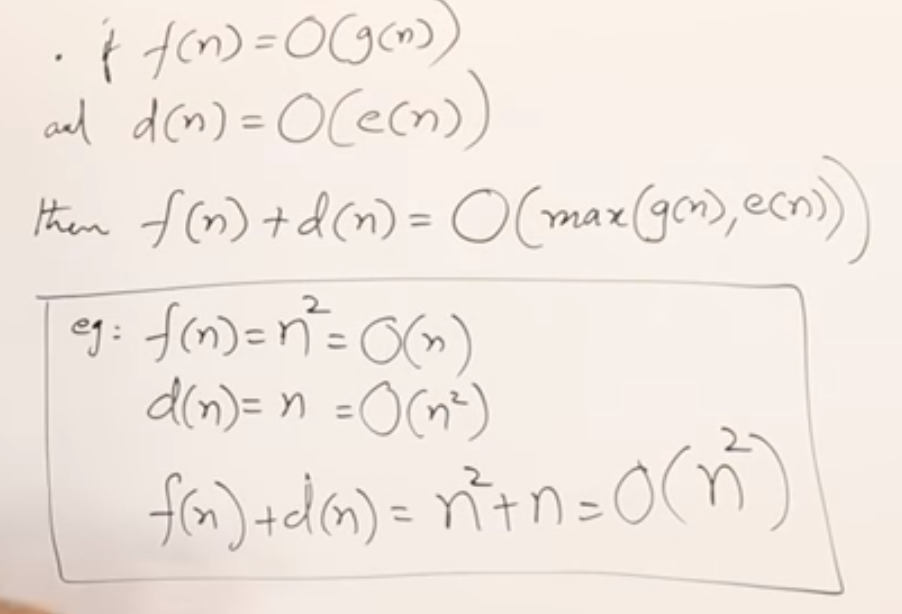 . if f(n) = O(g(n))
and d(n) = O(e(n))
then f(n) + d(n) = O(max(g(n), e(n)))
eg: f(n) = n² = O(n)
d(n) = n = O(n²)
f(n) + d(n) = n² + n = O(n²)